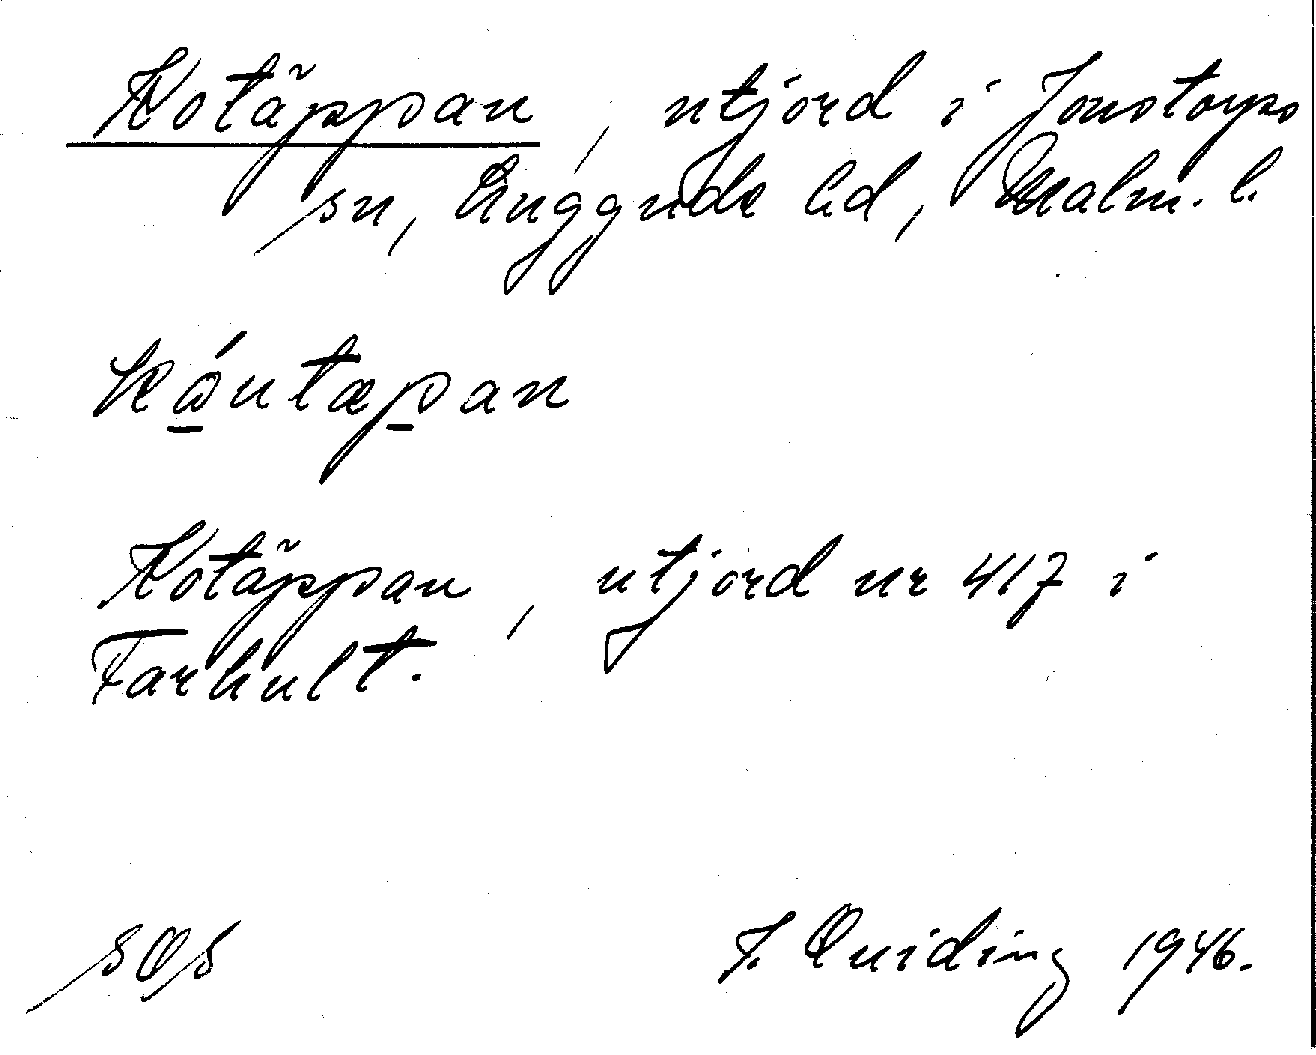 Kotäppan, utjord i Jonstorps
sn, Luggude hd, Malm. l.
kǻutæpan
Kotäppan, utjord nr 417 i
Farhult.
SOS
F. Quiding 1946.